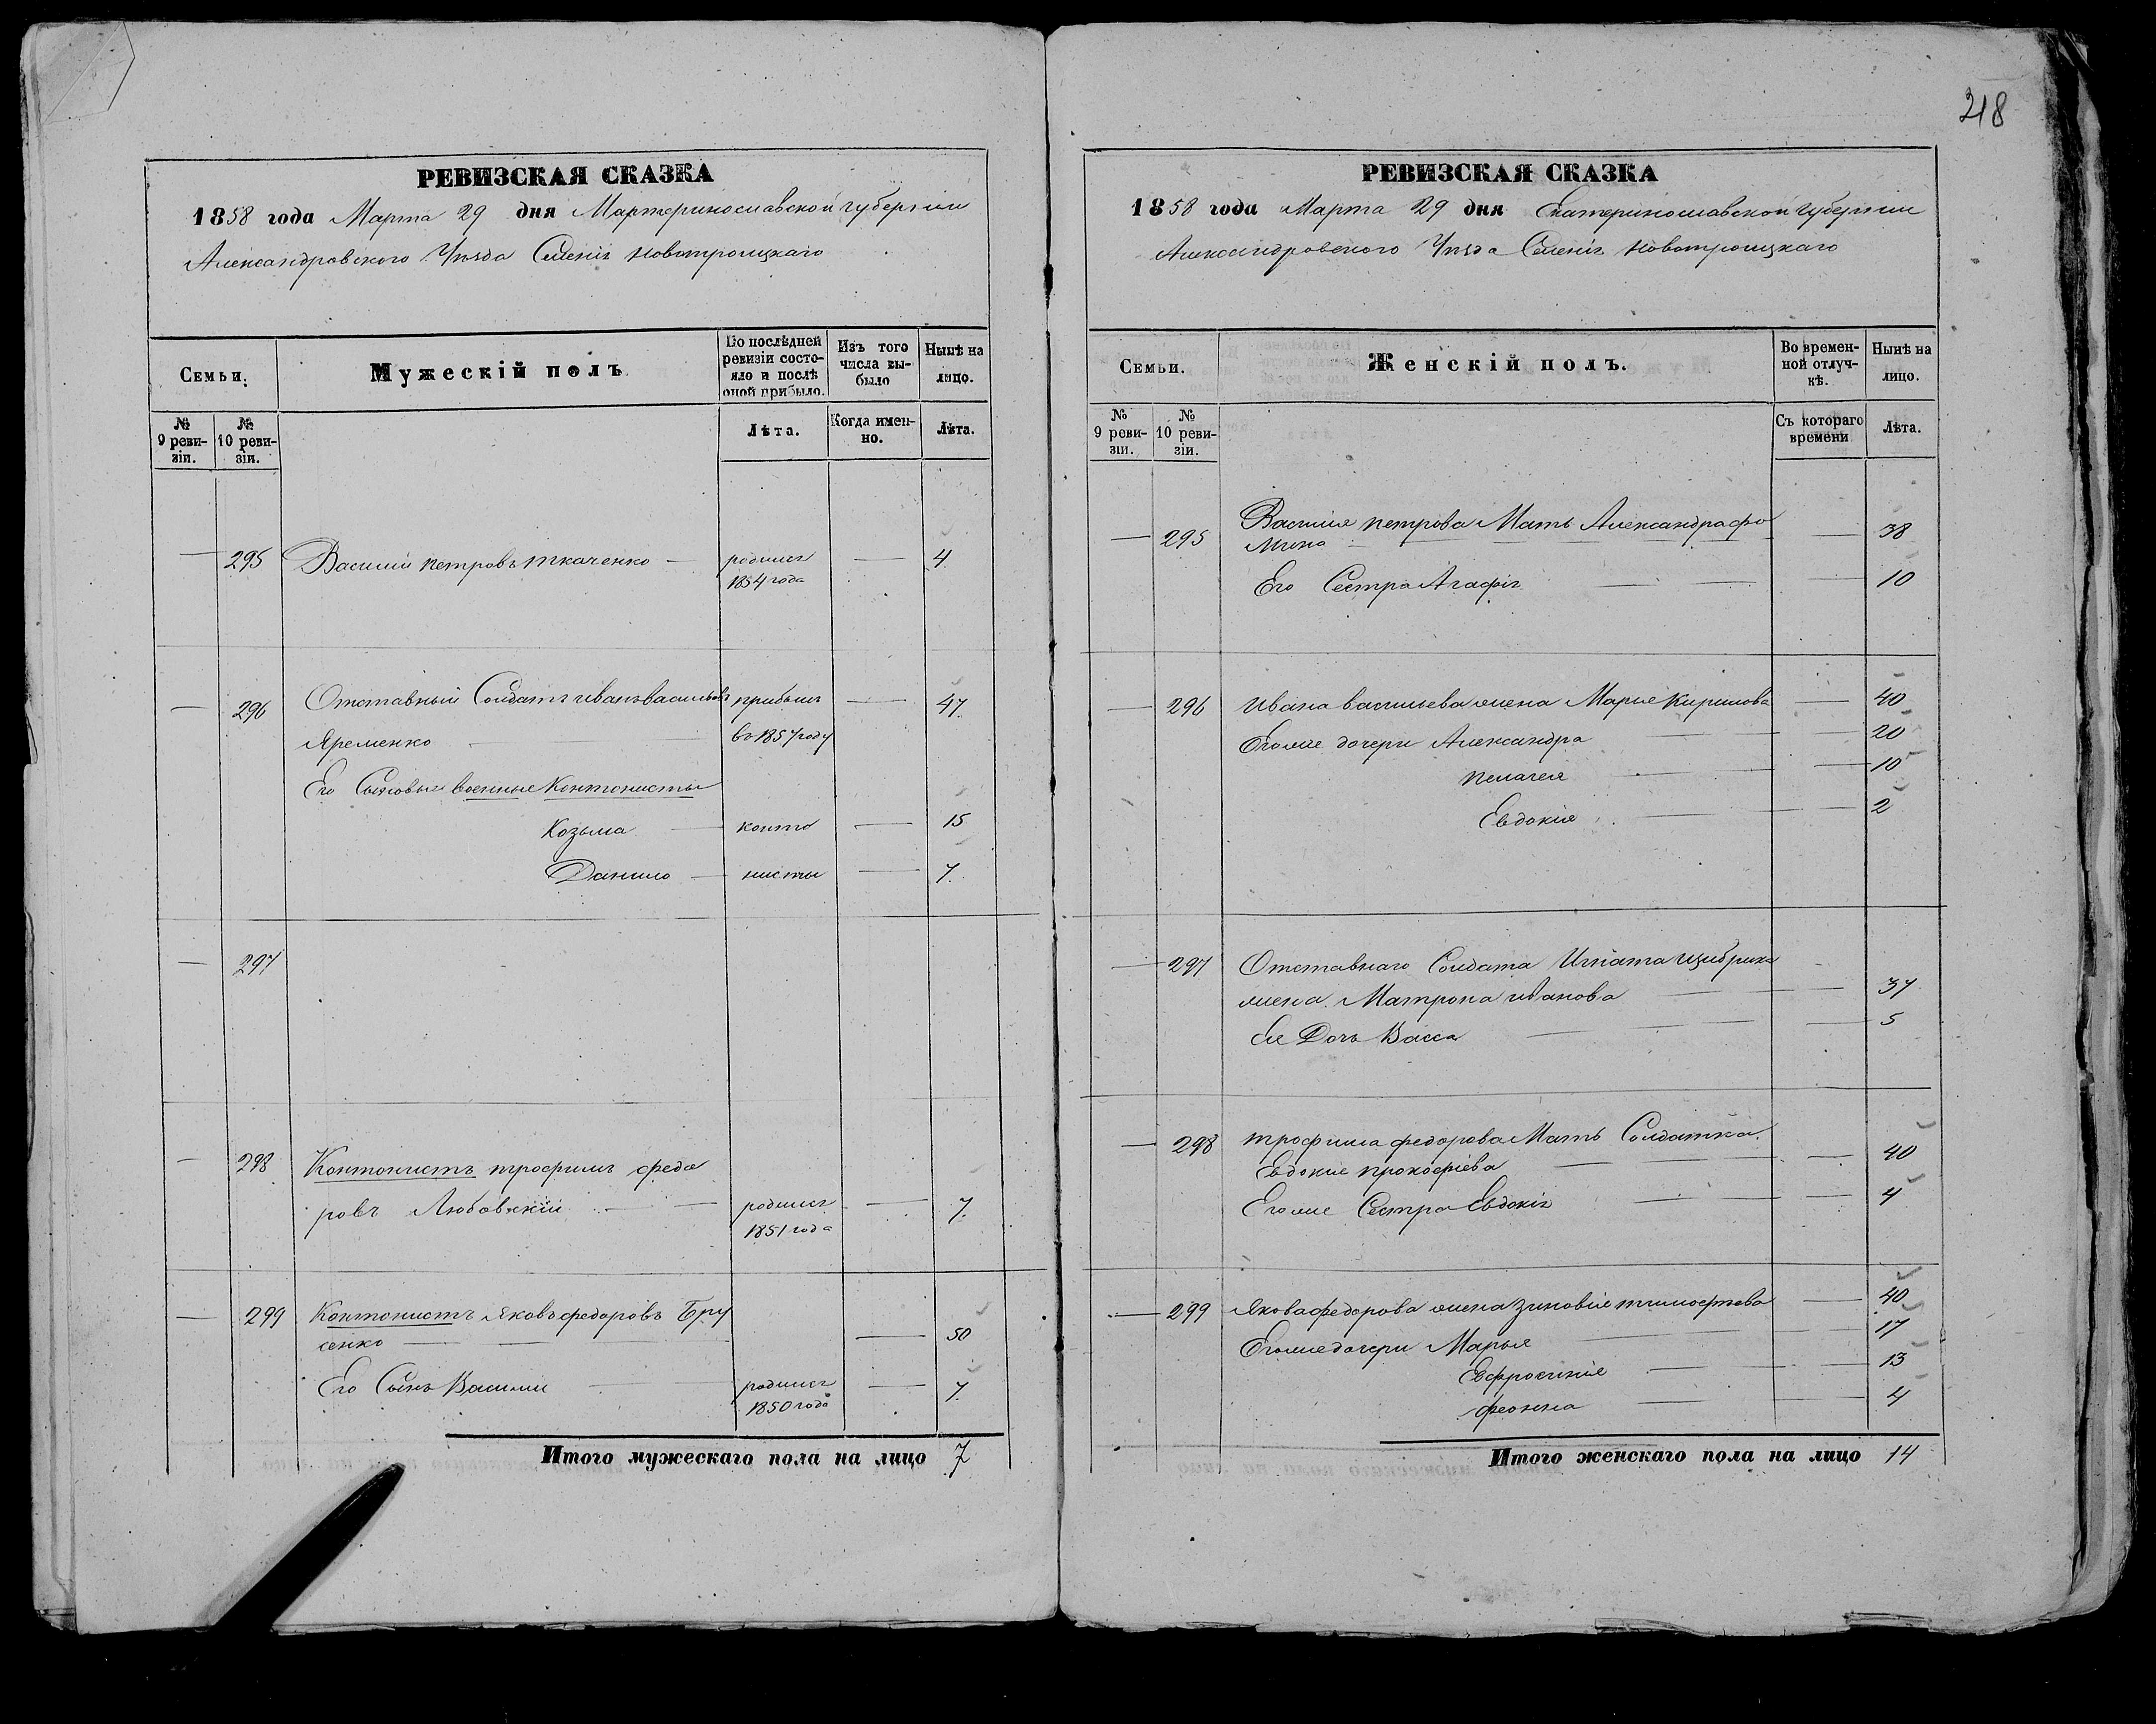 218
РЕВИЗСКАЯ СКАЗКА
1858 года Марта 29 дня Мартеринославской губернии
Александровского Уѣзда Селенія Новотроицкаго
Семьи.
Мужескій полъ
По послѣдней ревизіи состояло и послѣ оной прибыло.
Изъ того числа выбыло
Нынѣ на лицо.
№ 9 ревизіи.
№ 10 ревизіи.
Лѣта.
Когда именно.
Лѣта.
— 295 Василий петровъ ткаченко — родился — 4
1854 года
— 296 Отставный Солдатъ иванъ васильевъ прибылъ — 47
Яременко — въ 1857 году
Его Сыновья военные Контонисты
Козьма — конто — 15
Данило — нисты — 7.
— 297
— 298 Контонистъ трофимъ федо
ровъ Любовскій — родился — 7.
1851 года
— 299 Контонистъ Яковъ федоровъ Бру
сенко — — 50
Его Сынъ Василий — родился — 7.
1850 года
Итого мужескаго пола на лицо 7
РЕВИЗСКАЯ СКАЗКА
1858 года Марта 29 дня Екатеринославской губернии
Александровского Уѣзда Селенія Новотроицкаго
Семьи.
Женскій полъ.
Во временной отлучкѣ.
Нынѣ на лицо.
№ 9 ревизіи.
№ 10 ревизіи.
Съ котораго времени
Лѣта.
— 295 Василия петрова Мать Александра фо — 38
мина
Его Сестра Агафія — 10
— 296 Ивана васильева жена Марья Кирилова — 40
Его же дочери Александра — 20
пелагея — 10
Евдокия — 2
— 297 Отставнаго Солдата Игната Цибрика
жена Матрона иванова — 37
Ея Дочь Васса — 5
— 298 трофима федорова Мать Солдатка
Евдокия прокофіева — 40
Его же Сестра Евдокія — 4
— 299 Якова федорова жена зиновія тимофеева — 40
Его же дочери Марья — 17
Евфросиния — 13
феонна — 4
Итого женскаго пола на лицо 14